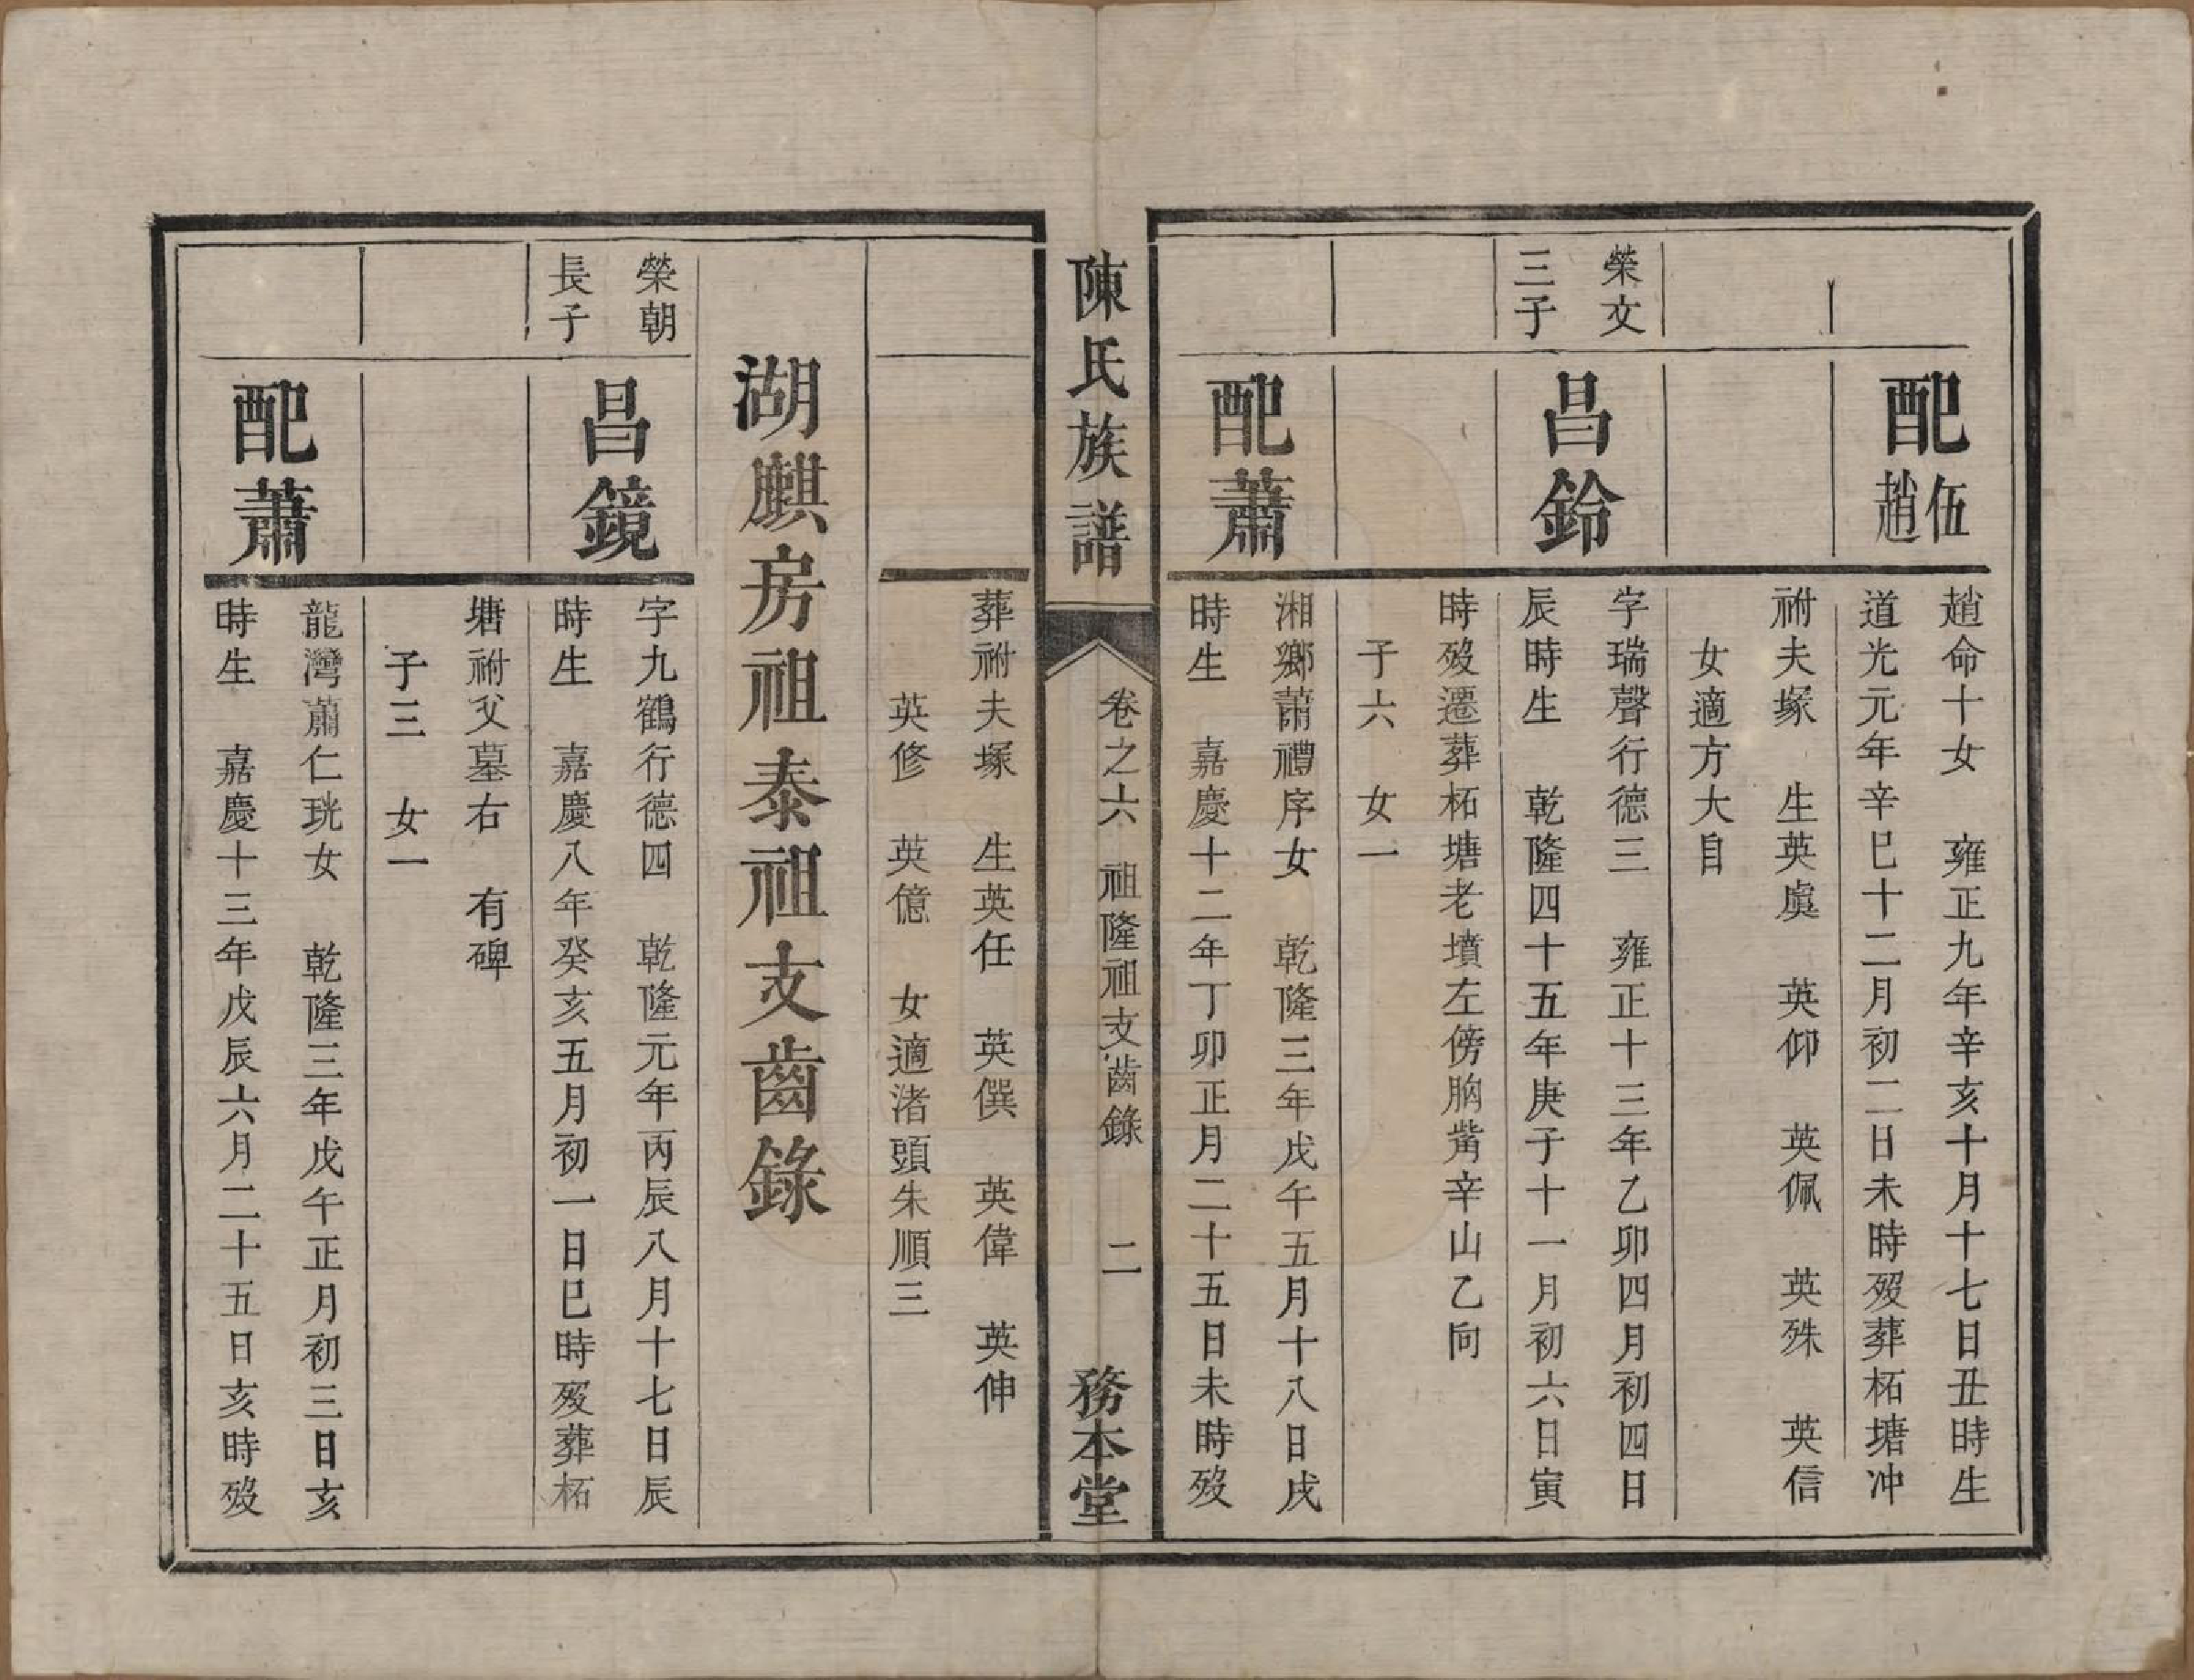 配伍趙
趙命十女　雍正九年辛亥十月十七日丑時生
道光元年辛巳十二月初二日未時歿葬柘塘冲
祔夫塚　生英虞　英仰　英佩　英殊　英信
女適方大目
榮文
三子
昌鈴
字瑞聲行德三　雍正十三年乙卯四月初四日
辰時生　乾隆四十五年庚子十一月初六日寅
時歿遷葬柘塘老墳左傍胸觜辛山乙向
子六　女一
配蕭
湘鄉蕭禮序女　乾隆三年戊午五月十八日戌
時生　嘉慶十二年丁卯正月二十五日未時歿
陳氏族譜
卷之六　祖隆祖支齒錄　二
務本堂
葬祔夫塚　生英任　英僎　英偉　英伸
英修　英億　女適渚頭朱順三
湖麒房祖泰祖支齒錄
榮朝
長子
昌鏡
字九鶴行德四　乾隆元年丙辰八月十七日辰
時生　嘉慶八年癸亥五月初一日巳時歿葬柘
塘祔父墓右　有碑
子三　女一
配蕭
龍灣蕭仁珖女　乾隆三年戊午正月初三日亥
時生　嘉慶十三年戊辰六月二十五日亥時歿